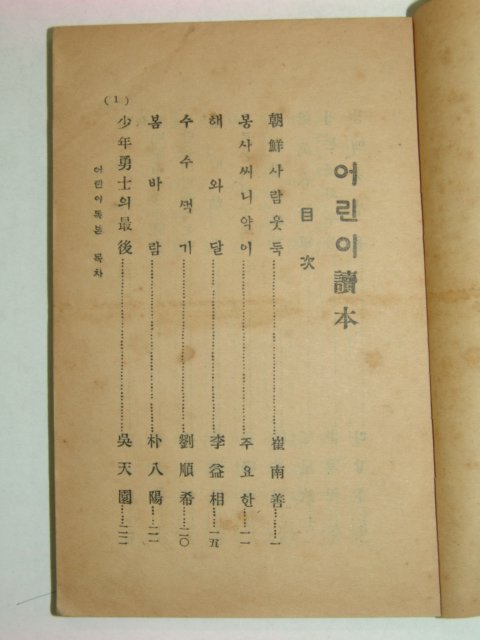 어린이讀本
目次
朝鮮사람웃둑……崔南善……一
봉사씨니약이……주요한……一一
해와달……李益相……一五
수수ᄭᅥᆨ기……劉順希……二〇
봄바람……朴八陽……二一
少年勇士의最後……吳天園……二二
(1)
어린이독본 목차